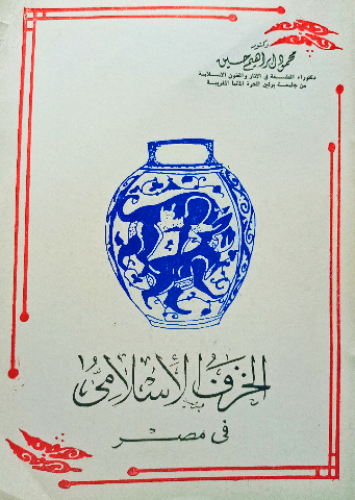 دكتور
محمود إبراهيم حسين
دكتوراه الفلسفة في الآثار والفنون الإسلامية
من جامعة برلين الحرة ألمانيا الغربية
الخزف الإسلامي
في مصر